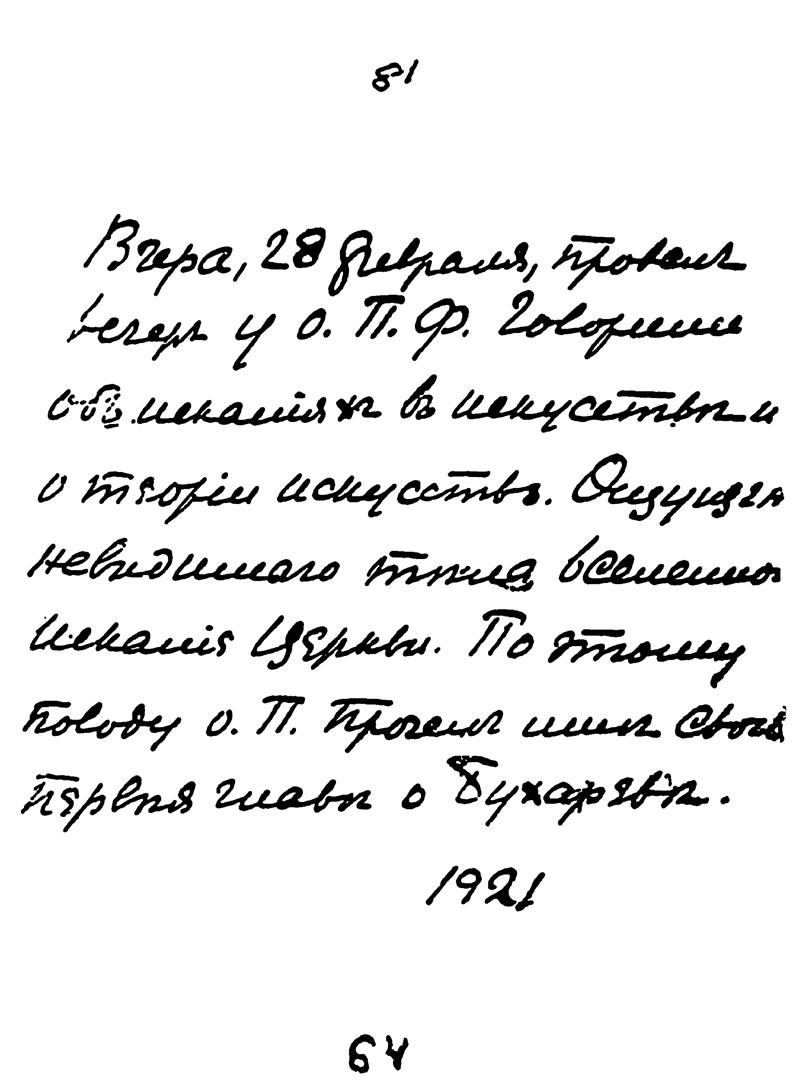 81
Вчера, 28 февраля, провелъ
вечеръ у о. П. Ф. Говорили
объ исканіяхъ въ искусствѣ и
о теоріи искусствъ. Ощущая
невидимаго тѣла вселенной
исканія Церкви. По этому
поводу о. П. Прочелъ мнѣ свои
первыя главы о Бухаревѣ.
1921
64